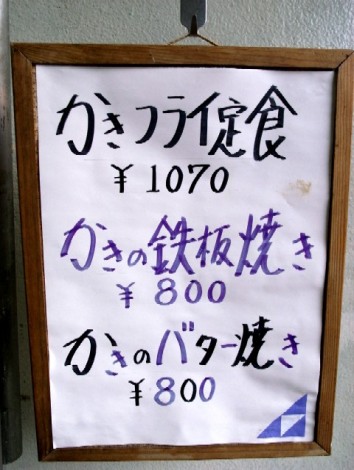 かきフライ定食
¥1070
かきの鉄板焼き
¥800
かきのバター焼き
¥800